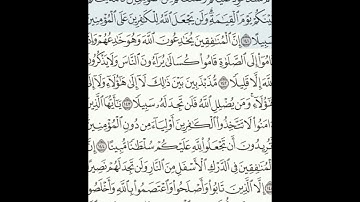 بينكم يوم القيمة ولن يجعل الله للكفرين على المؤمنين
سبيلا ١٤١ إن المنفقين يخدعون الله وهو خدعهم وإذا
قاموا إلى الصلوة قاموا كسالى يراءون الناس ولا يذكرون
الله إلا قليلا ١٤٢ مذبذبين بين ذلك لا إلى هؤلاء ولا إلى
هؤلاء ومن يضلل الله فلن تجد له سبيلا ١٤٣ يأيها الذين
ءامنوا لا تتخذوا الكفرين أولياء من دون المؤمنين
أتريدون أن تجعلوا لله عليكم سلطنا مبينا ١٤٤ إن
المنفقين في الدرك الأسفل من النار ولن تجد لهم نصيرا
١٤٥ إلا الذين تابوا وأصلحوا واعتصموا بالله وأخلصوا